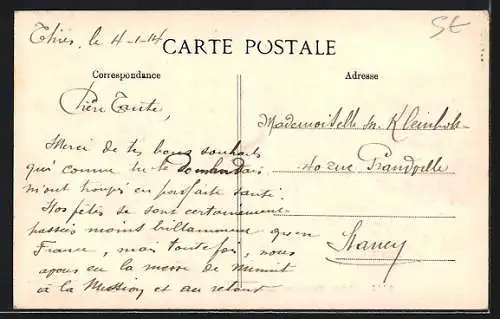 Thiès, le 4-1-14
St
CARTE POSTALE
Correspondance
Adresse
Chère Tante,
Merci de tes bons souhaits
qui comme tu le demandais
m'ont trouvé en parfaite santé.
Nos fêtes se sont certainement
passées moins brillamment qu'en
France, mais toutefois, nous
avons eu la messe de Minuit
à la Mission et au retour
Mademoiselle M.
40 rue Grandville
Nancy